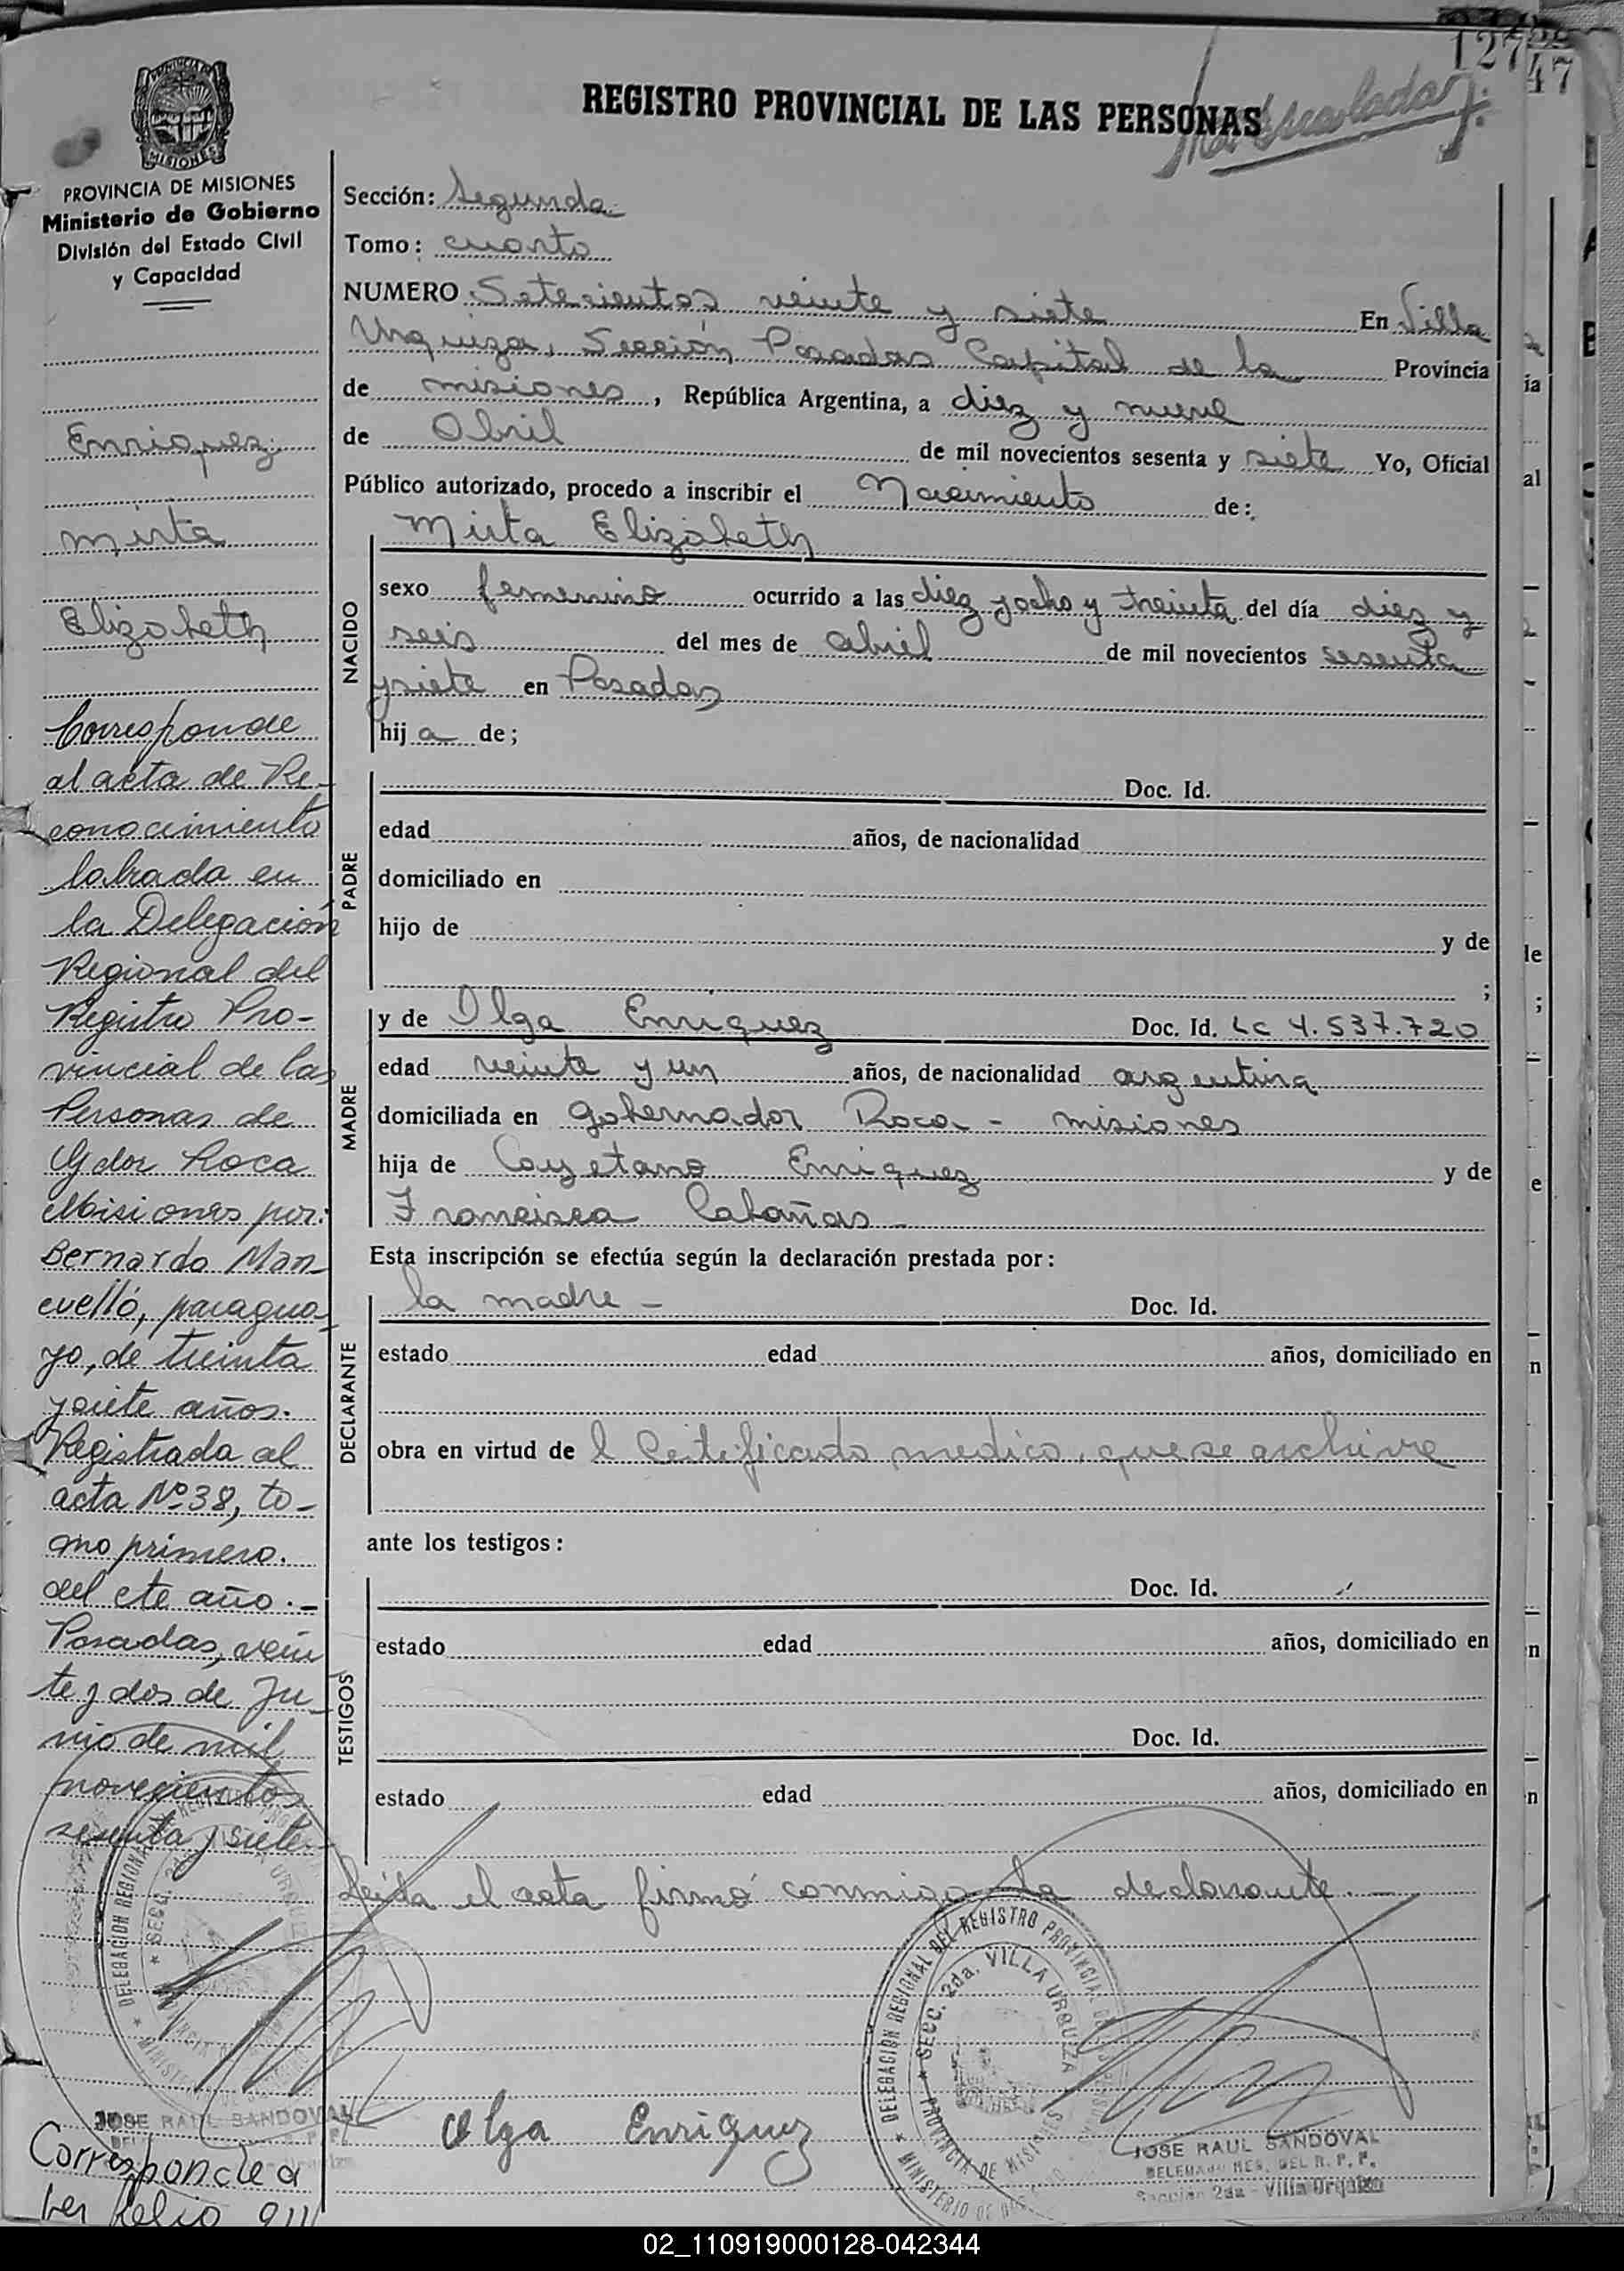 127
47
REGISTRO PROVINCIAL DE LAS PERSONAS
MISIONES
PROVINCIA DE MISIONES
Ministerio de Gobierno
División del Estado Civil
y Capacidad
Enriquez
Mirta
Elizabeth
Corresponde
al acta de Re-
conocimiento
labrada en
la Delegación
Regional del
Registro Pro-
vincial de las
Personas de
Gdor Roca
Misiones por:
Bernardo Man
cuelló, paragua-
yo, de treinta
y siete años.
Registrada al
acta Nº 38, to-
mo primero.
del cte año.-
Posadas, vein
te y dos de Ju-
nio de mil
novecientos
sesenta y siete
JOSE RAUL SANDOVAL
Corresponde a
Sección: Segunda
Tomo: cuarto
NUMERO Setecientos veinte y siete En Villa
Urquiza, Sección Posadas Capital de la Provincia
de misiones, República Argentina, a diez y nueve
de Abril de mil novecientos sesenta y siete Yo, Oficial
Público autorizado, procedo a inscribir el Nacimiento de:
NACIDO
Mirta Elizabeth
sexo femenino ocurrido a las diez y ocho y treinta del día diez y
seis del mes de abril de mil novecientos sesenta
y siete en Posadas
hija de;
PADRE
Doc. Id.
edad años, de nacionalidad
domiciliado en
hijo de y de
;
MADRE
y de Olga Enriquez Doc. Id. LC 4.537.720
edad veinte y un años, de nacionalidad argentina
domiciliada en gobernador Roca - misiones
hija de Cayetano Enriquez y de
Francisca Cabañas
Esta inscripción se efectúa según la declaración prestada por:
DECLARANTE
la madre - Doc. Id.
estado edad años, domiciliado en
obra en virtud de l Certificado medico, que se archiva
ante los testigos:
TESTIGOS
Doc. Id.
estado edad años, domiciliado en
Doc. Id.
estado edad años, domiciliado en
Leida el acta firmó conmigo la declarante.-
DELEGACION REGIONAL DEL REGISTRO PROVINCIAL
SECC. 2da. VILLA URQUIZA
PROVINCIA DE MISIONES
Olga Enriquez
JOSE RAUL SANDOVAL
DELEGADO REG. DEL R. P. P.
Sección 2da - Villa Urquiza
02_110919000128-042344